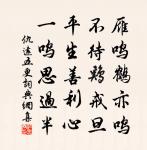 雁鸣鹤亦鸣
不待鸡戒旦
平生善利心
一鸣思过半
仇远五更词典网集